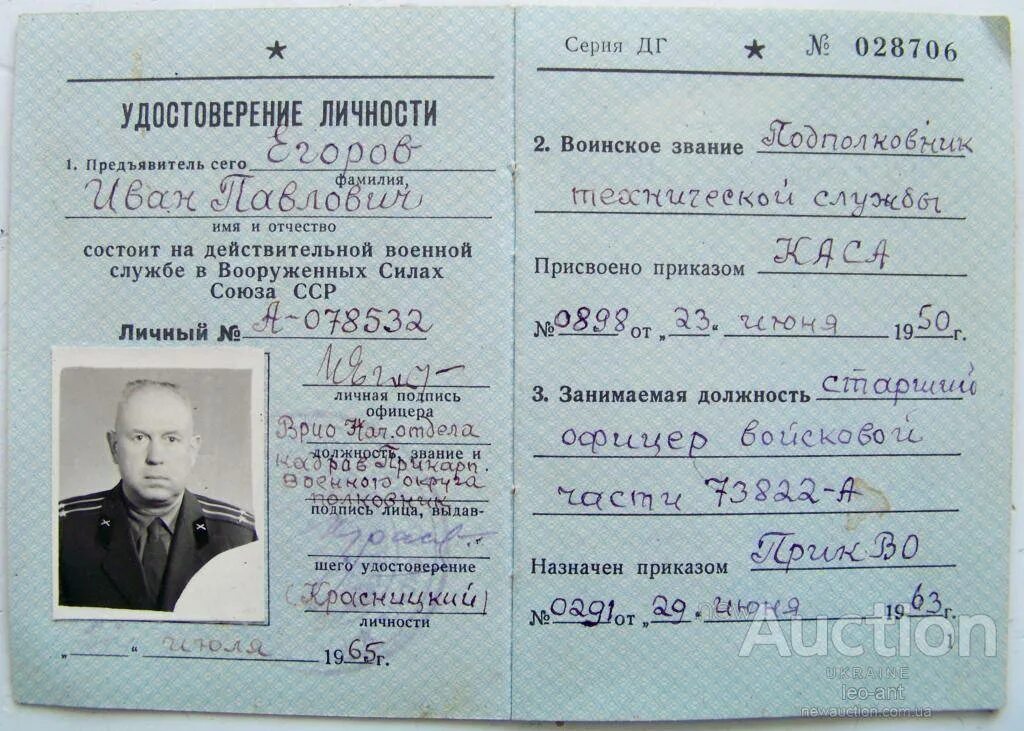 УДОСТОВЕРЕНИЕ ЛИЧНОСТИ
1. Предъявитель сего Егоров
фамилия,
Иван Павлович
имя и отчество
состоит на действительной военной
службе в Вооруженных Силах
Союза ССР
Личный № А-078532
личная подпись
офицера
Врио Нач. отдела
должность, звание и
кадров Прикарп.
Военного округа
полковник
подпись лица, выдав-
шего удостоверение
(Красницкий)
личности
„ “ июля 1965 г.
Серия ДГ № 028706
2. Воинское звание Подполковник
технической службы
Присвоено приказом КАСА
№ 0898 от „23“ июня 1950 г.
3. Занимаемая должность старший
офицер войсковой
части 73822-А
Назначен приказом ПрикВО
№ 0291 от „29“ июня 1963 г.
Auction
UKRAINE
leo-ant
newauction.com.ua